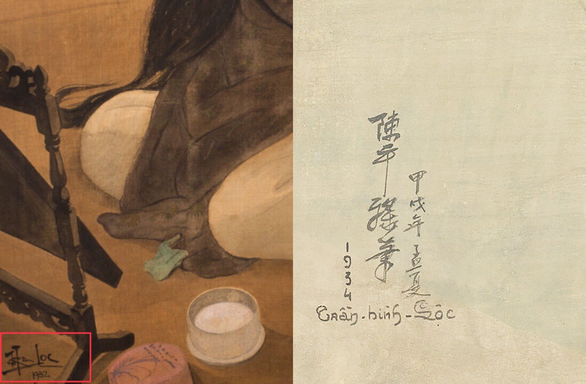 Loc
陳平祿筆
甲戌年孟夏
1934
Trần-bình-Lộc